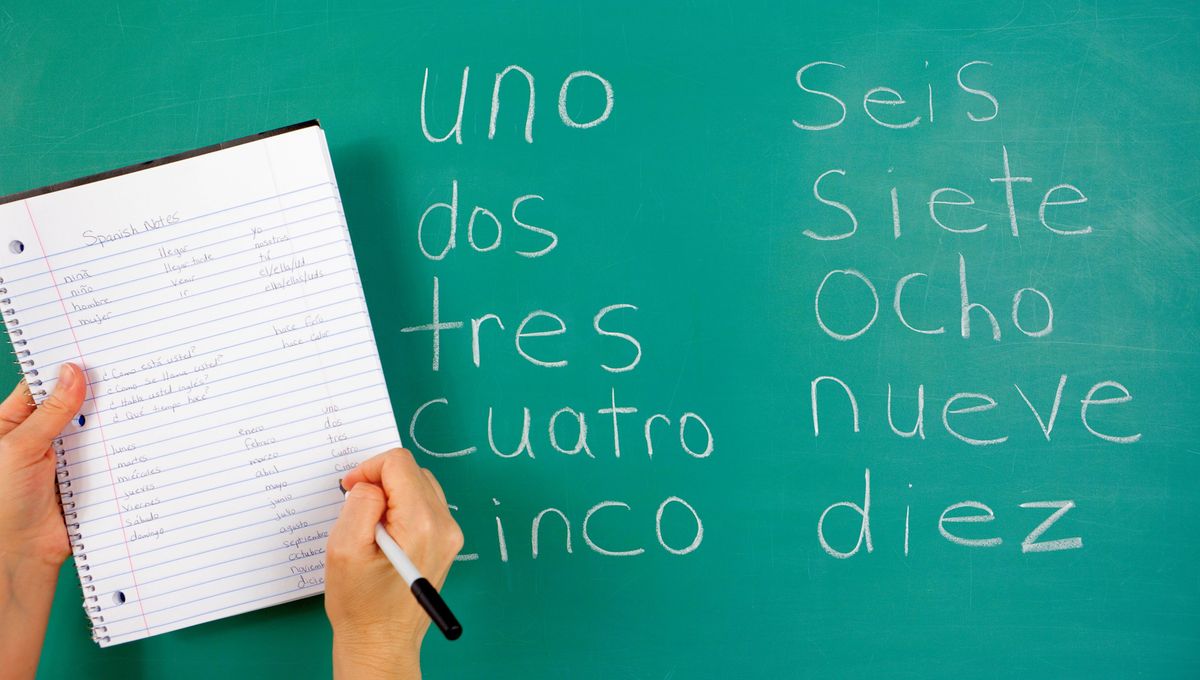 Spanish Notes
niña
niño
hombre
mujer
llegar
llegar tarde
venir
ir
yo
nosotros
tú
el/ella/ud
ella/ellas/uds
hace frío
hace calor
¿Como está usted?
¿Como se llama usted?
¿Habla usted inglés?
¿Qué tiempo hace?
lunes
martes
miércoles
jueves
viernes
sábado
domingo
enero
febrero
marzo
abril
mayo
junio
julio
agosto
septiembre
octubre
uno
dos
tres
cuatro
cinco
uno
dos
tres
cuatro
cinco
seis
siete
ocho
nueve
diez